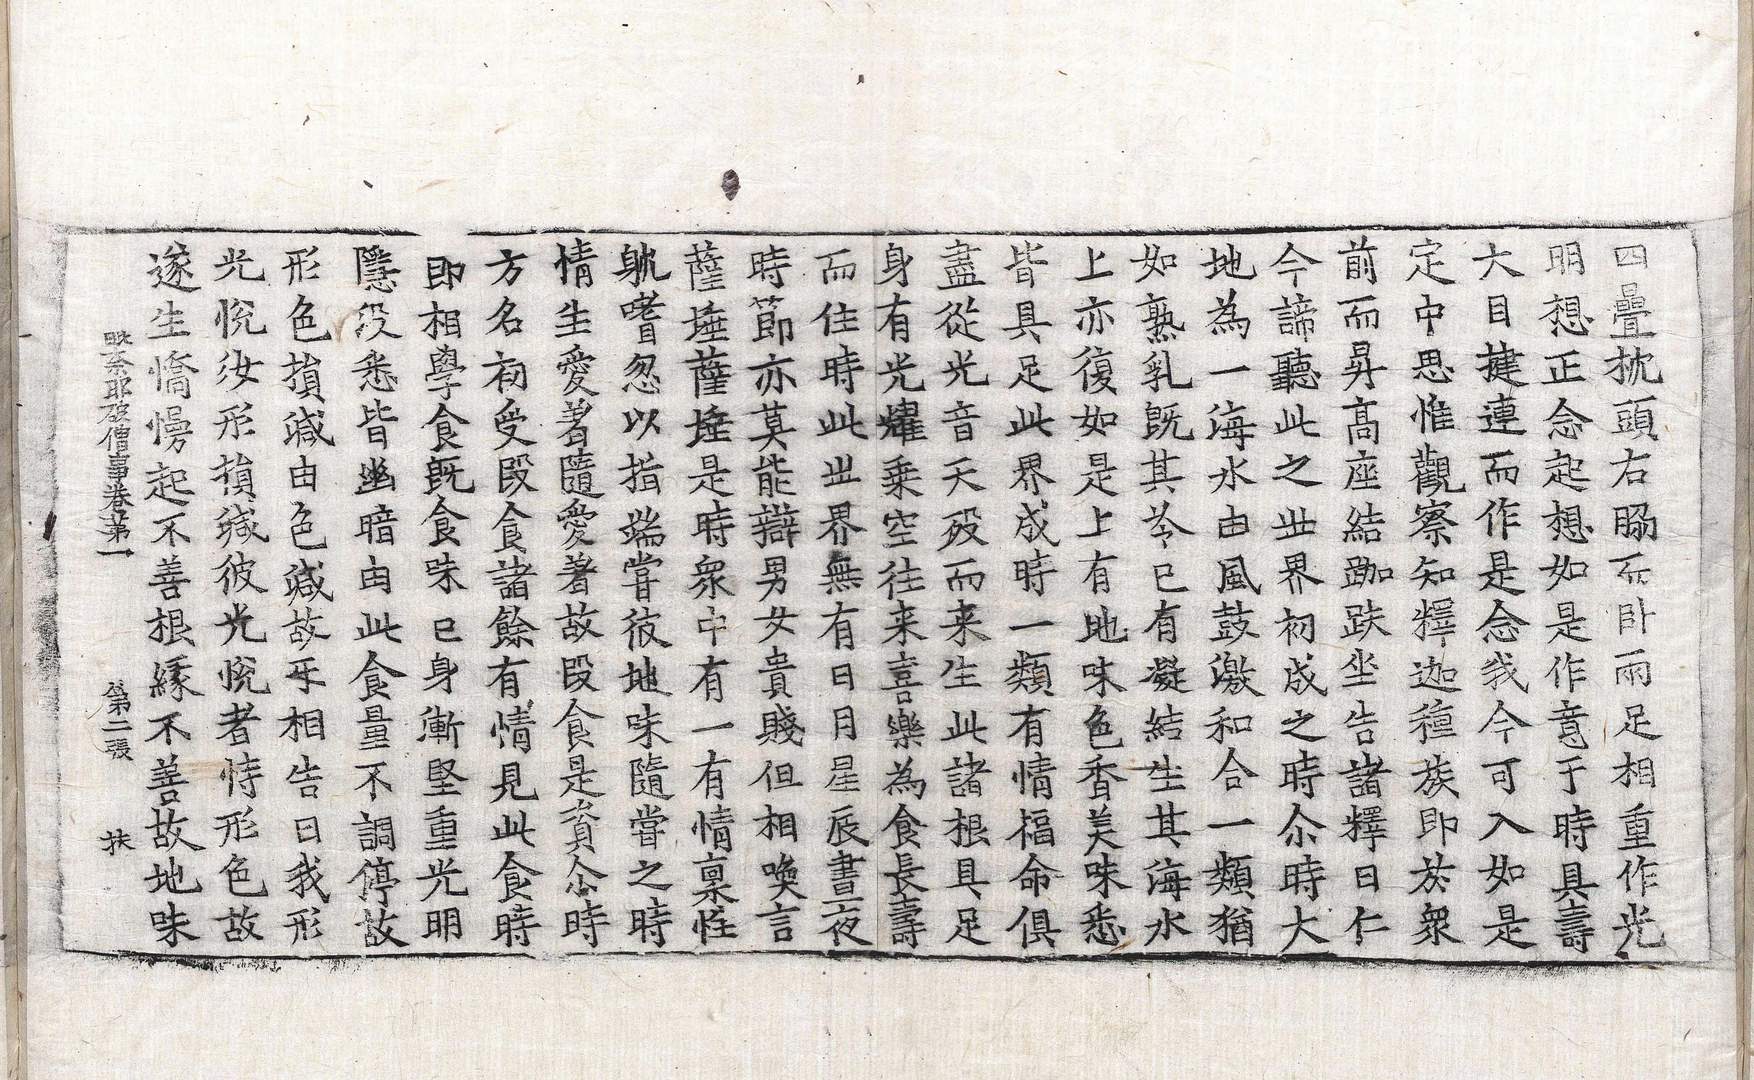 四疊枕頭右脇而卧兩足相重作光
明想正念起想如是作意于時具壽
大目揵連而作是念我今可入如是
定中思惟觀察知釋迦種族即於衆
前而昇高座結跏趺坐告諸釋曰仁
今諦聽此之世界初成之時尒時大
地為一海水由風鼓激和合一類猶
如熟乳既其冷已有凝結生其海水
上亦復如是上有地味色香美味悉
皆具足此界成時一類有情福命俱
盡從光音天歿而来生此諸根具足
身有光耀乗空往来喜樂為食長壽
而住時此世界無有日月星辰晝夜
時節亦莫能辯男女貴賤但相喚言
薩埵薩埵是時衆中有一有情稟性
躭嗜忽以指端嘗彼地味隨嘗之時
情生愛著隨愛著故段食是資尒時
方名初受段食諸餘有情見此食時
即相學食既食味已身漸堅重光明
隱没悉皆幽暗由此食量不調停故
形色損减由色减故㸦相告曰我形
光悅汝形損减彼光悅者恃形色故
遂生憍慢起不善根緣不善故地味
毗奈耶破僧事卷第一 第二張 扶